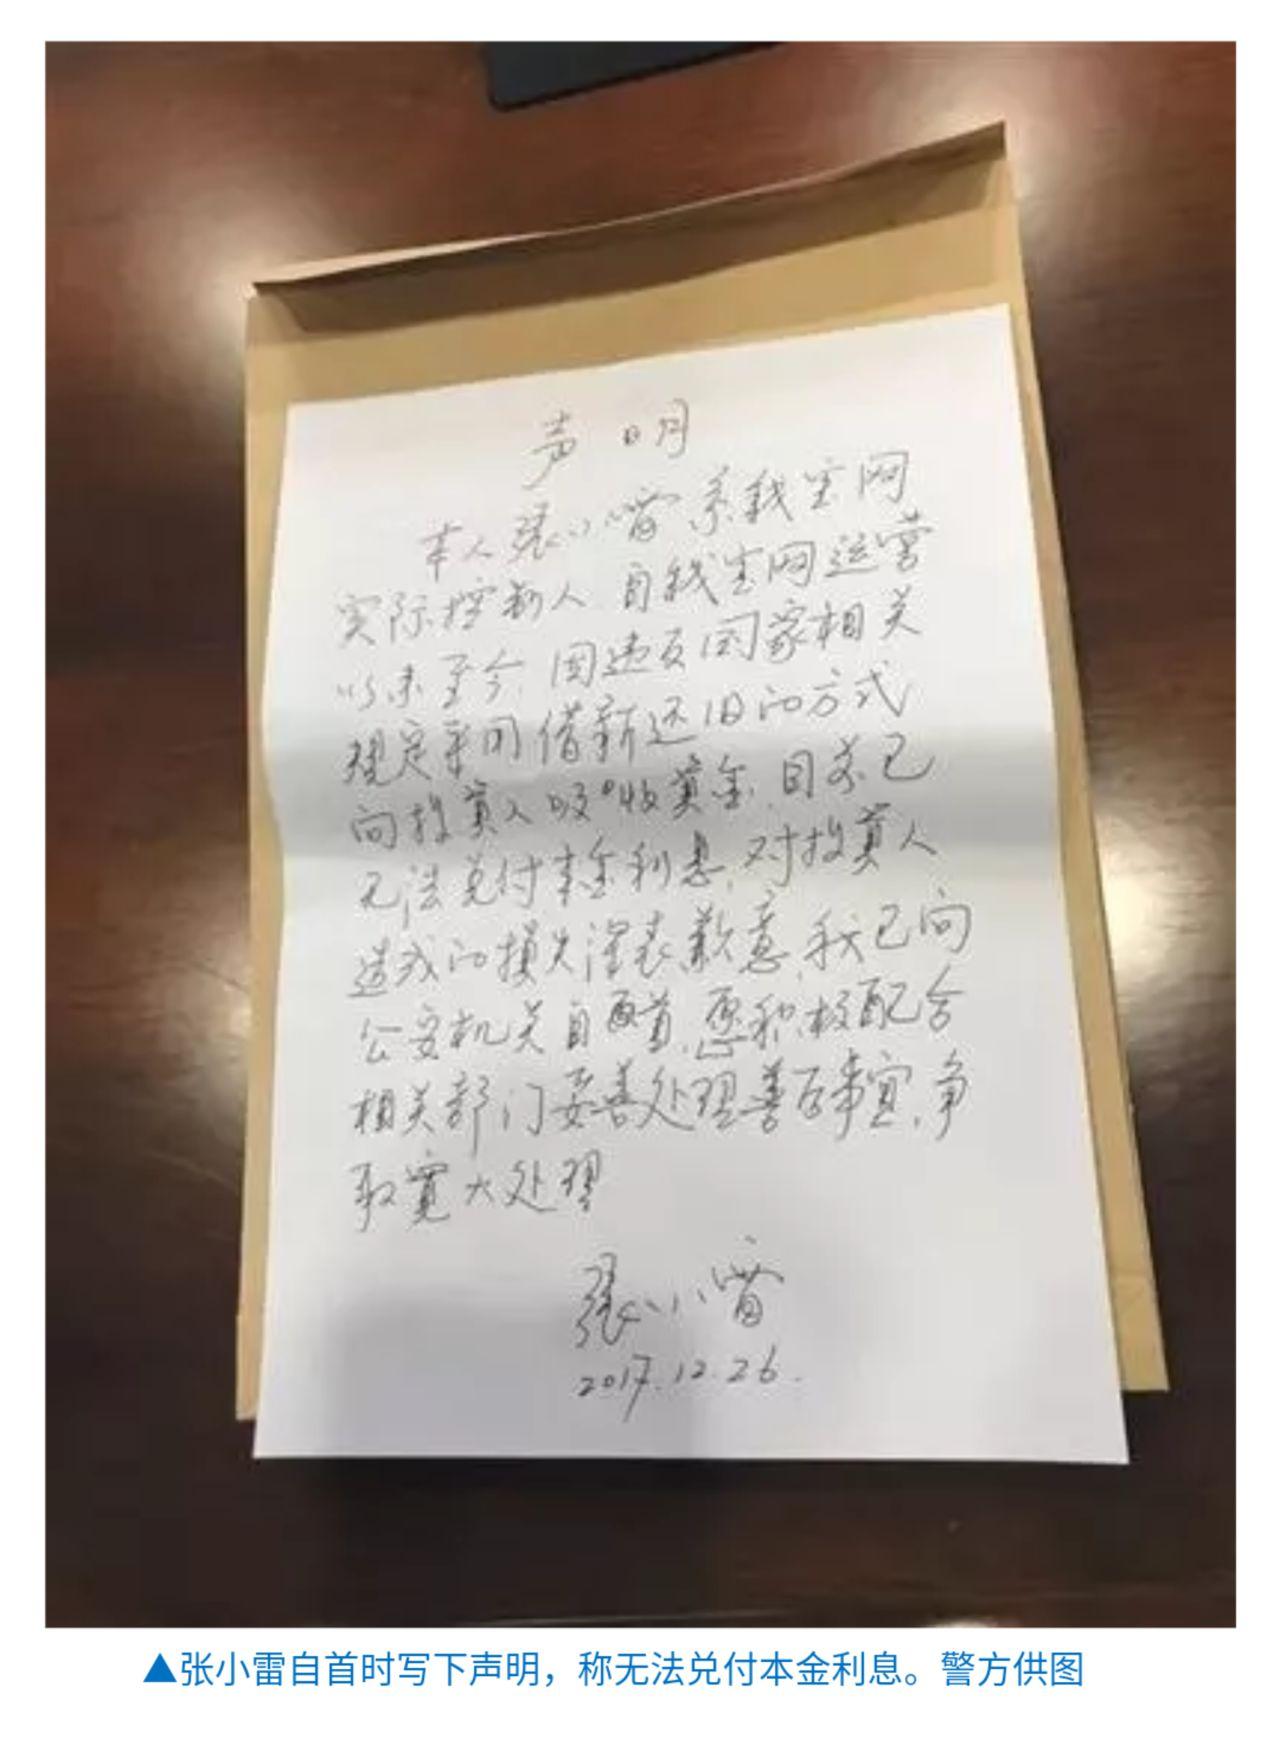 声明
本人張小雷系钱宝网
实际控制人.自钱宝网运营
以来至今,因违反国家相关
规定采用借新还旧的方式
向投资人吸收资金,目前已
无法兑付本金利息,对投资人
造成的损失深表歉意,我已向
公安机关自首,愿积极配合
相关部门妥善处理善后事宜,争
取宽大处理
張小雷
2017.12.26.
▲张小雷自首时写下声明，称无法兑付本金利息。警方供图